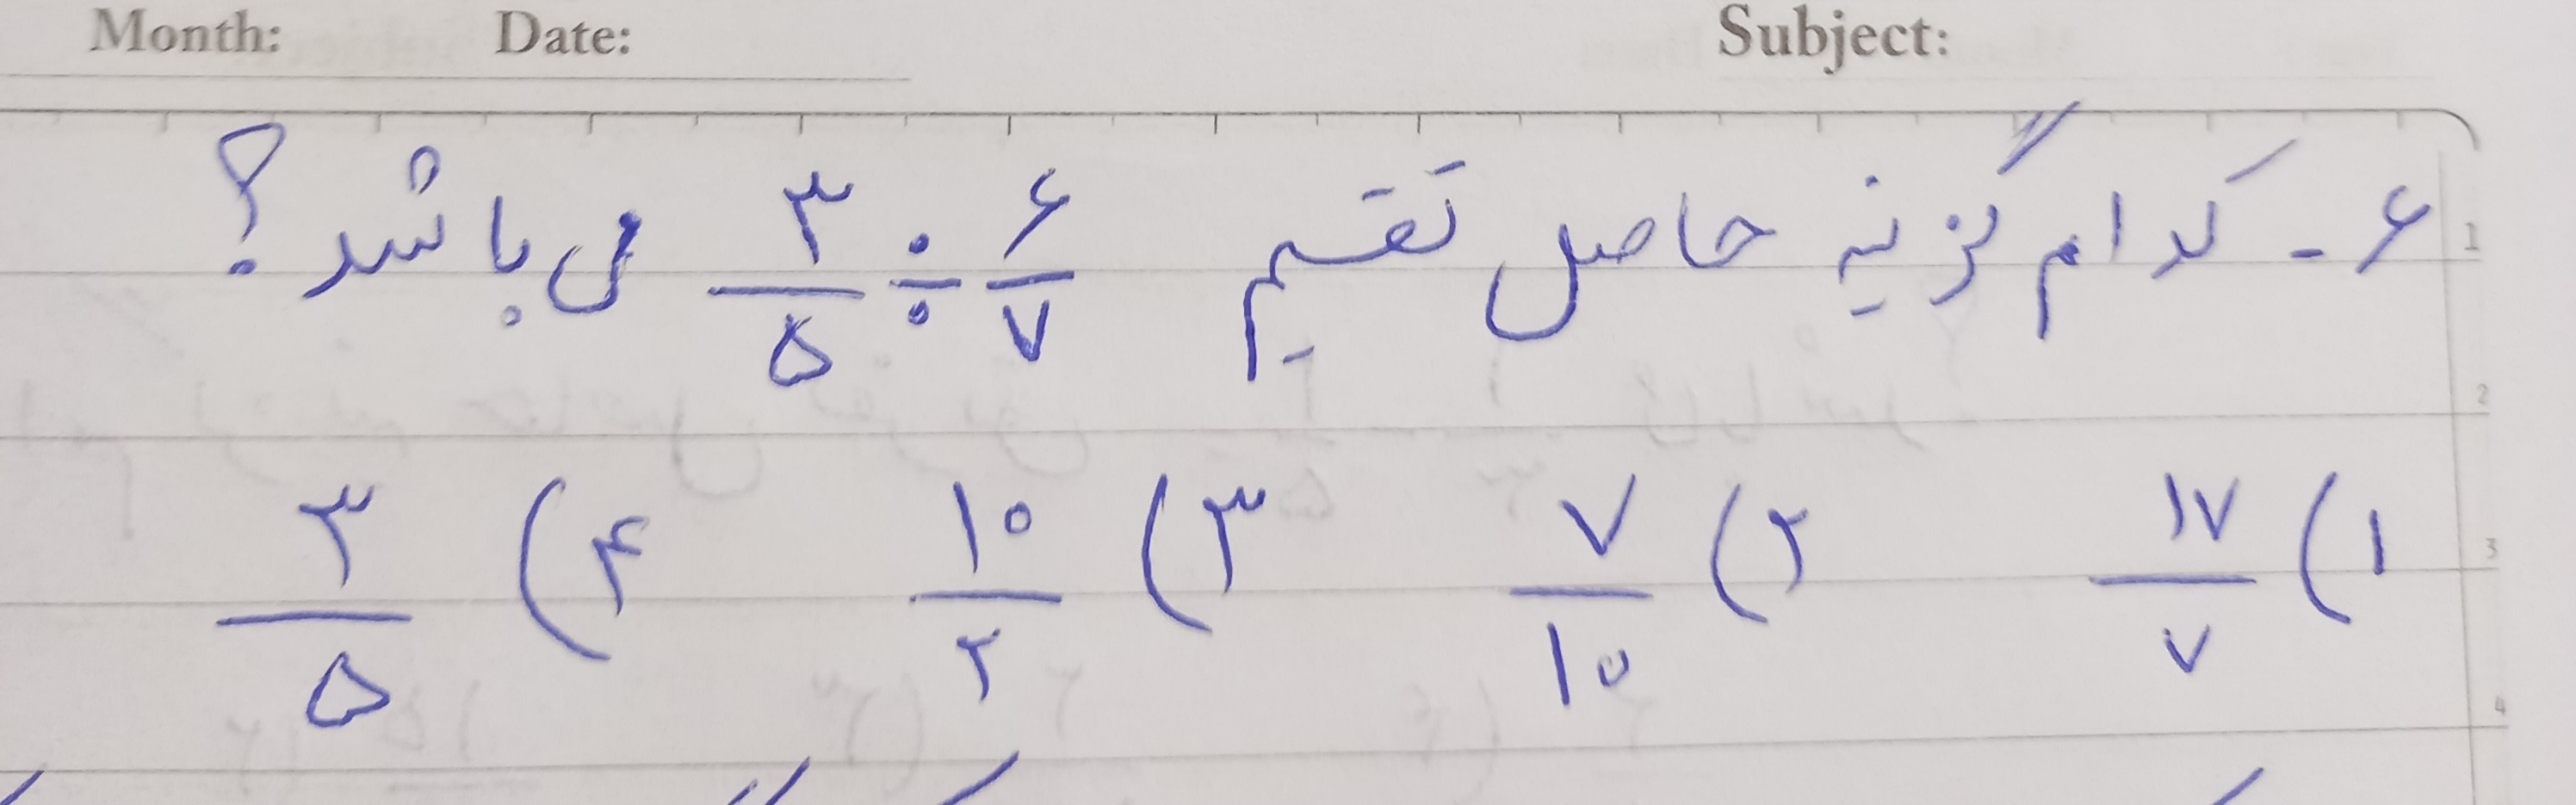 Month: Date: Subject:
۶- کدام گزینه حاصل تقسیم ۳/۵ ÷ ۶/۷ می باشد؟
۱) ۱۷/۷ ۲) ۷/۱۰ ۳) ۱۰/۲ ۴) ۳/۵
1
2
3
4